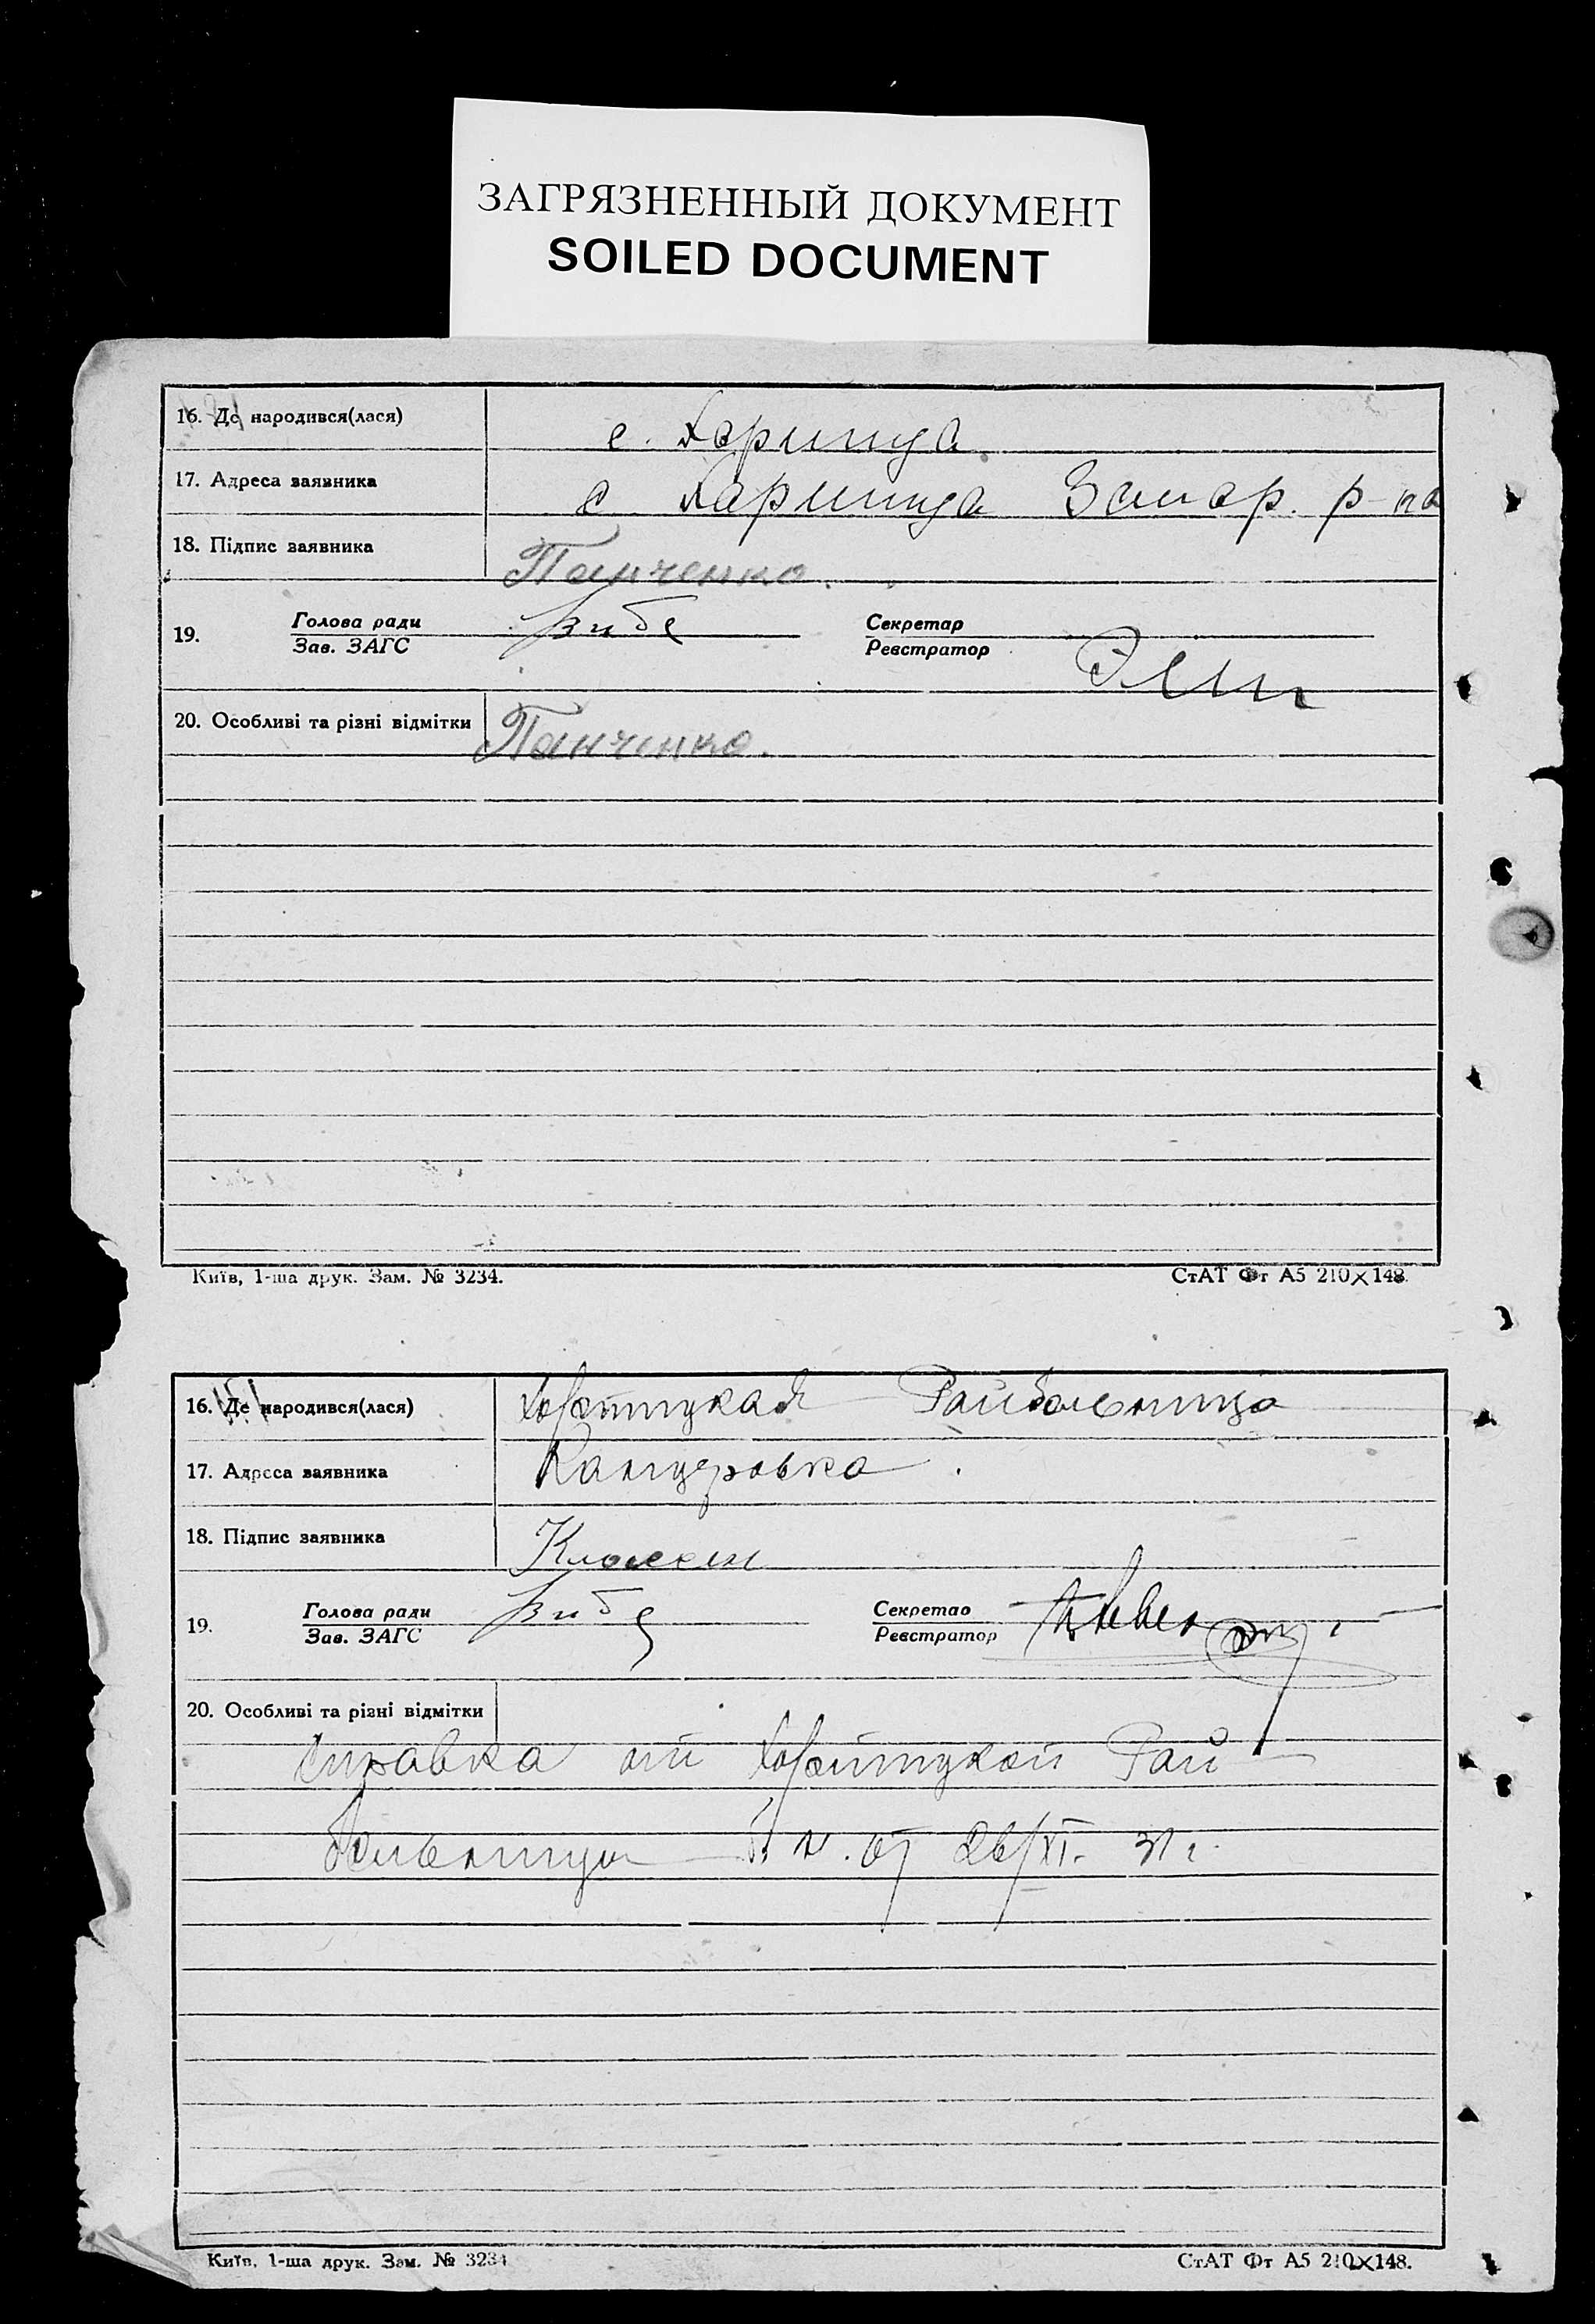 ЗАГРЯЗНЕННЫЙ ДОКУМЕНТ
SOILED DOCUMENT
16. Де народився(лася) с. Хортица
17. Адреса заявника с Хортица Запор. р-на
18. Підпис заявника Панченко.
19. Голова ради Вибе Секретар
Зав. ЗАГС Реєстратор
20. Особливі та різні відмітки Панченко.
Київ, 1-ша друк. Зам. № 3234.
СтАТ Фт А5 210×148.
16. Де народився(лася) Хортицкая Райбольница
17. Адреса заявника Канцеровка.
18. Підпис заявника
19. Голова ради Вибе Секретар
Зав. ЗАГС Реєстратор
20. Особливі та різні відмітки
Справка от Хортицкой Рай
больницы от 26/XI. 31 г.
Київ, 1-ша друк. Зам. № 3234
СтАТ Фт А5 210×148.